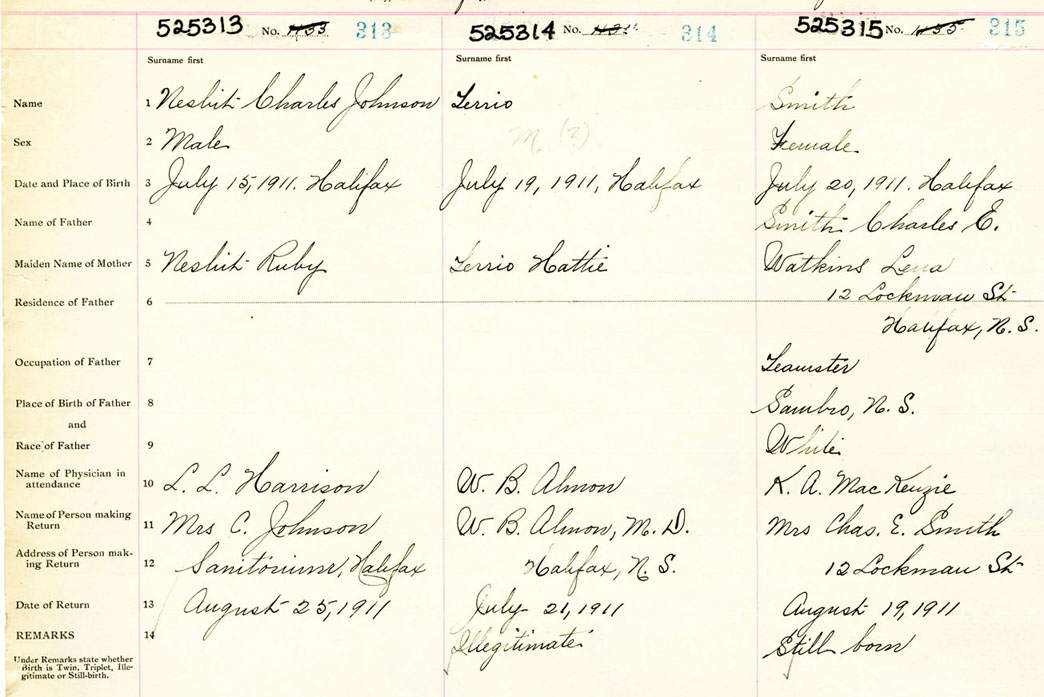 525313 No. 433 313 525314 No. 313 314 525315 No. 435 315
Surname first Surname first Surname first
Name 1 Nesbit Charles Johnson Terrio Smith
Sex 2 Male M. (?) Female
Date and Place of Birth 3 July 15, 1911. Halifax July 19, 1911, Halifax July 20, 1911. Halifax
Name of Father 4 Smith Charles E.
Maiden Name of Mother 5 Nesbit Ruby Terrio Hattie Watkins Lena
Residence of Father 6 12 Lockman St
Halifax, N. S.
Occupation of Father 7 Teamster
Place of Birth of Father 8 Sambro, N. S.
and
Race of Father 9 White
Name of Physician in
attendance 10 L. L. Harrison W. B. Almon K. A. MacKenzie
Name of Person making
Return 11 Mrs C. Johnson W. B. Almon, M. D. Mrs Chas. E. Smith
Address of Person mak-
ing Return 12 Sanitorium, Halifax Halifax, N. S. 12 Lockman St
Date of Return 13 August 25, 1911 July 21, 1911 August 19, 1911
REMARKS 14 Illegitimate Still born
Under Remarks state whether
Birth is Twin, Triplet, Ille-
gitimate or Still-birth.